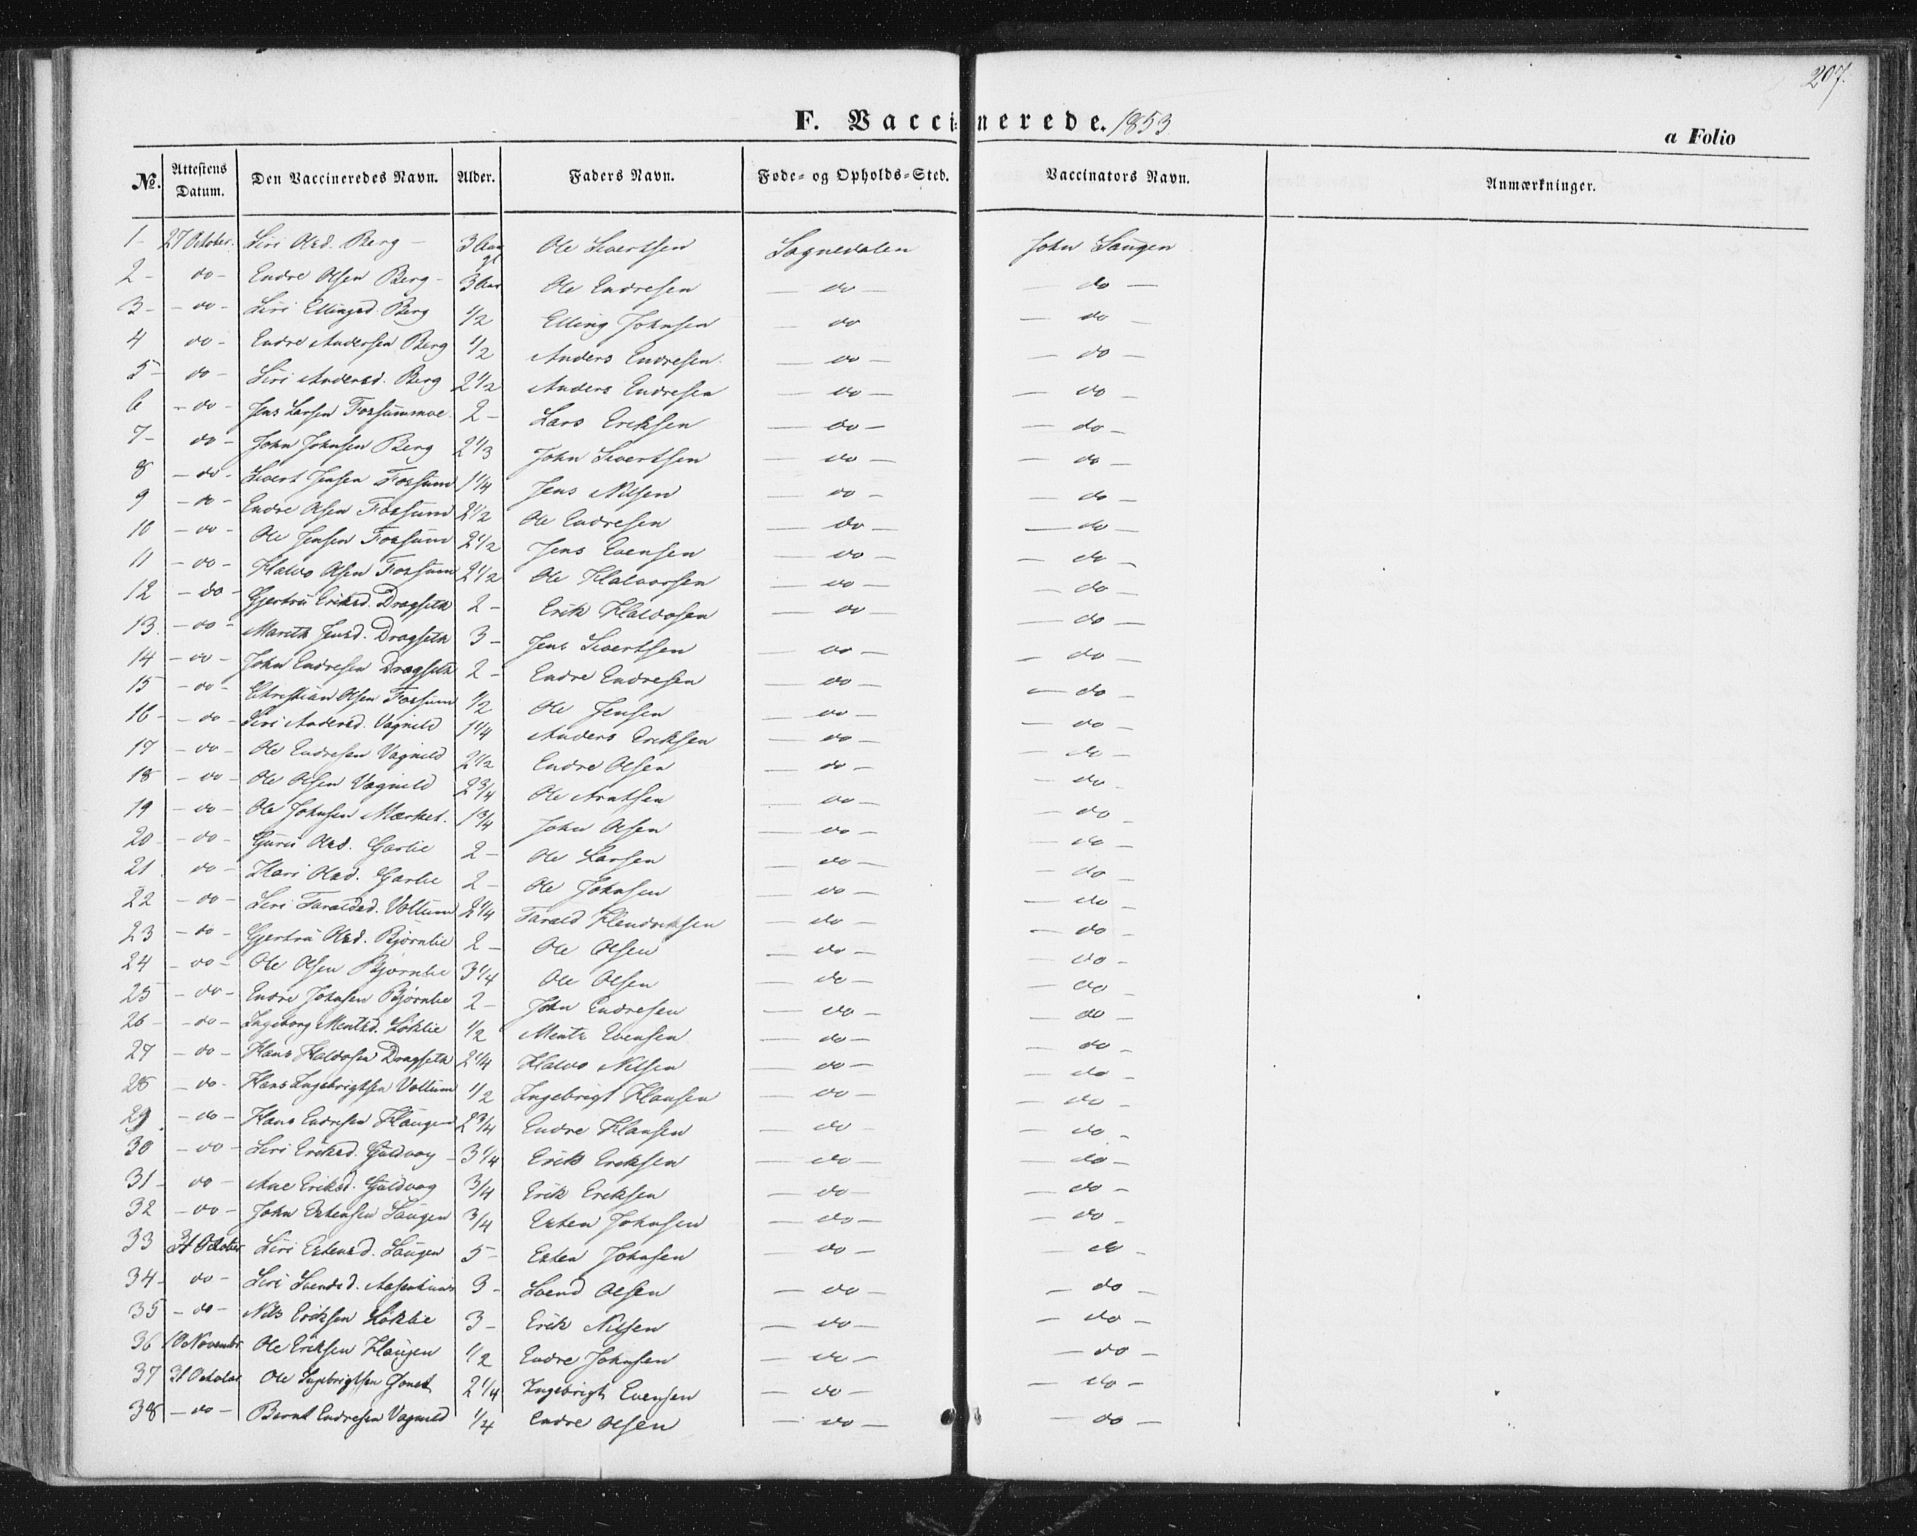 207.
F. Vaccinerede. 1853
a Folio
No. Attestens Datum. Den Vaccineredes Navn. Alder. Faders Navn. Føde- og Opholds-Sted. Vaccinators Navn. Anmærkninger.
1 - 27 October. Siri Olsd. Berg - 3 Aar gl Ole Sivertsen Sognedalen John Haugen
2 - do - Endre Olsen Berg - 3 Aar Ole Endresen - do - - do -
3 - - do - Siri Ellingsd. Berg 1/2 Elling Johnsen - do - do -
4 do - Endre Andersen Berg 1/2 Anders Endresen. - do - - do -
5 - do - Siri Andersd. Berg 2 1/2 Anders Endresen - do - - do -
6 - do - Jens Larsen Forsummoe. 2 - Lars Eriksen - do - - do -
7 - do - John Johnsen Berg 2 1/3 John Sivertsen - do - - do -
8 - do - Sivert Jensen Forsum 1 1/4 Jens Nilsen - do - - do -
9 - do - Endre Olsen Forsum 2 1/2 Ole Endresen - do - - do -
10 - do - Ole Jensen Forsum 2 1/2 Jens Evensen - do - - do -
11 - do - Haldo Olsen Forsum 2 1/2 Ole Haldorsen - do - - do -
12 - do - Gjertru Eriksd. Dragseth 2 - Erik Haldosen - do - - do -
13. - do - Marith Jensd. Dragseth 3 - Jens Sivertsen - do - - do -
14 - do - John Endresen Dragseth 2 - Endre Endresen - do - - do -
15 - do - Christian Olsen Forsum 1/2 Ole Jensen - do - - do -
16 - do - Siri Andersd. Vagnild 1 1/4 Anders Eriksen - do - - do -
17 - do - Ole Endresen Vagnild 2 1/2 Endre Olsen - do - - do -
18 - do - Ole Olsen Vagnild 2 3/4 Ole Arntsen - do - - do -
19 - do - Ole Johnsen Mærket. 1 3/4 John Olsen - do - - do -
20 - do - Guru Olsd. Garlie 2 - Ole Larsen - do - - do -
21 do - Kari Olsd. Garlie 2 - Ole Johnsen - do - - do -
22 - do - Siri Faraldsd. Vollum 2 1/4 Farald Hendriksen - do - - do -
23 - do - Gjertru Olsd. Bjørnlie 2 - Ole Olsen - do - - do -
24 - do - Ole Olsen Bjørnlie 3 1/4 Ole Olsen - do - - do -
25 - do - Endre Johnsen Bjørnlie 2 - John Endresen - do - - do -
26 - do - Ingeborg Mentsd. Løklie 1/2 Mentz Evensen - do - - do -
27 - do - Hans Haldosen Dragseth 2 1/4 Haldo Nilsen - do - - do -
28 - do - Hans Ingebrigtsen Vollum 1/2 Ingebrigt Hansen - do - - do -
29 - do - Hans Endresen Haugen 2 3/4 Endre Hansen - do - - do -
30 - do - Siri Eriksd. Guldvag - 3 1/4 Erik Eriksen - do - - do -
31 - do - Ane Eriksd. Guldvag 3/4 Erik Eriksen - do - - do -
32 - do - John Estensen Haugen 3/4 Esten Johnsen - do - - do -
33 31 October Siri Estensd. Haugen 5 - Esten Johnsen - do - do -
34 - do - Siri Svendsd. 3 - Svend Olsen - do - - do -
35 - do - Nils Eriksen Løklie 3 - Erik Nilsen - do - - do -
36 10 Novembr. Ole Eriksen Haugen 1/2 Endre Johnsen - do - - do -
37 31 October Ole Ingebrigtsen 2 1/4 Ingebrigt Evensen - do - - do -
38 - do - Bernt Endresen Vagnild 1/4 Endre Olsen - do - - do -